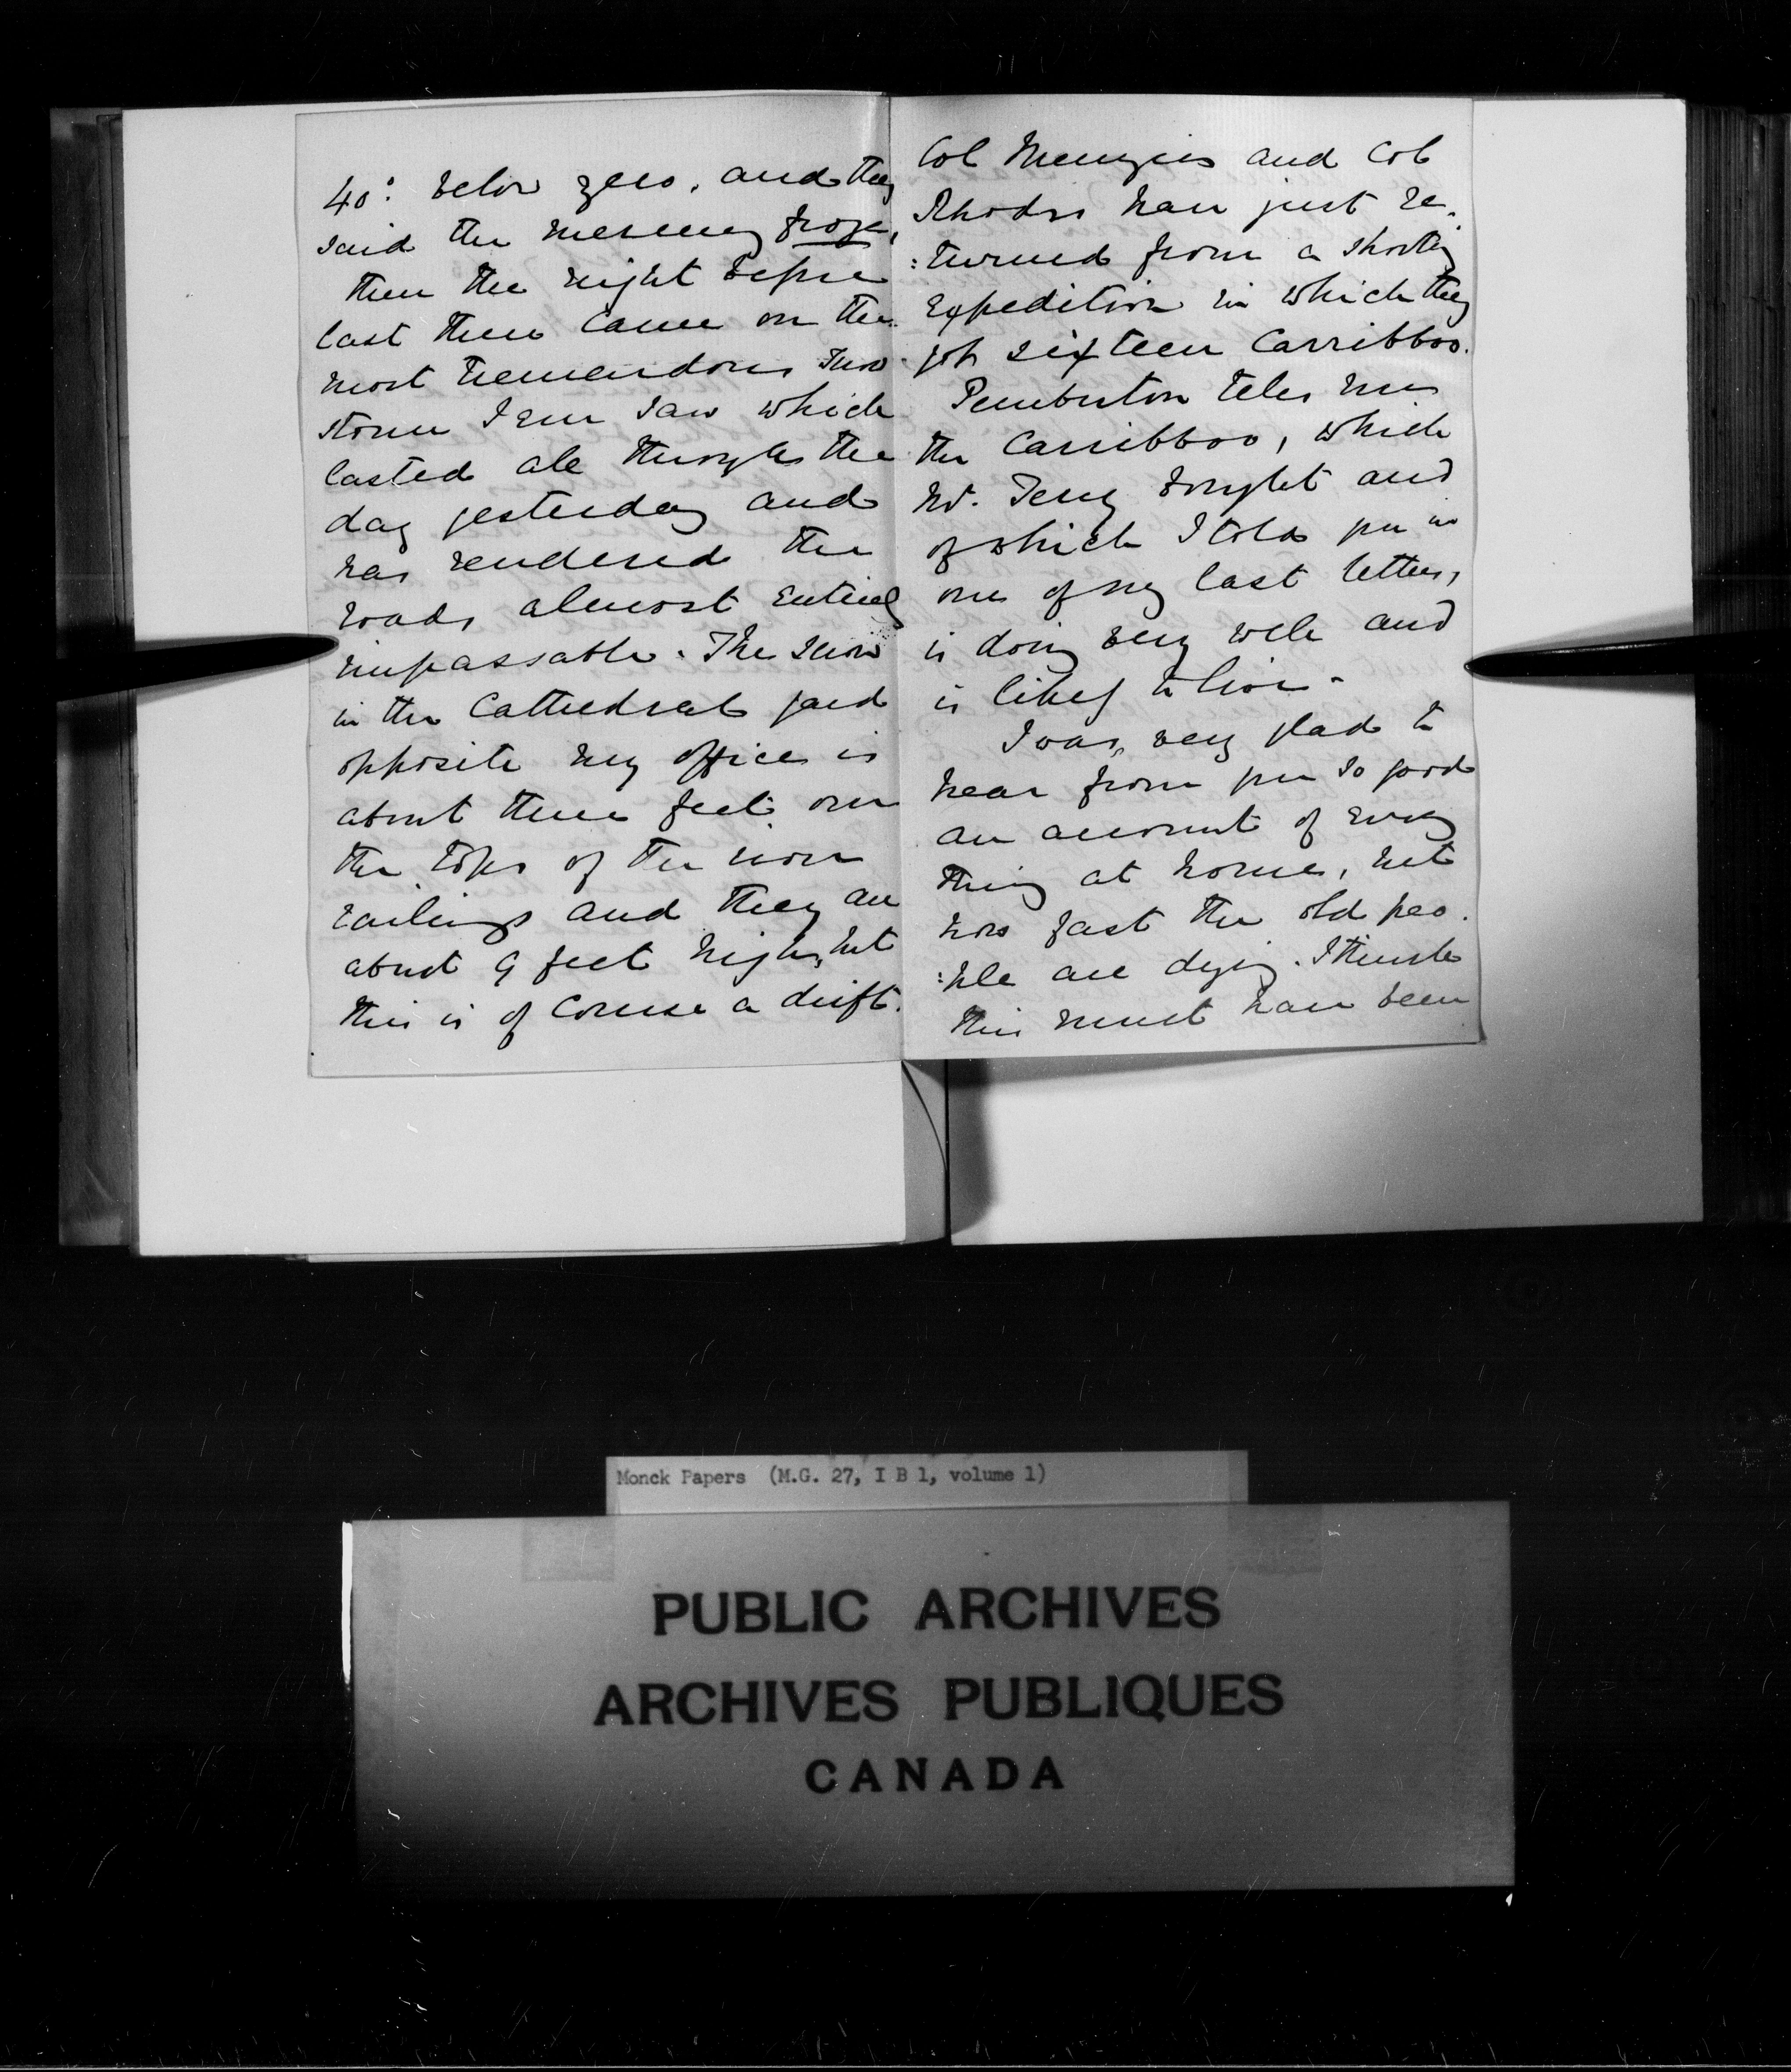 40° below zero, and they
said the mercury froze,
then the night before
last there came on the
most tremendous snow
storm I ever saw which
lasted all through the
day yesterday and
has rendered the
roads almost entirely
impassable. The snow
in the Cathedral yard
opposite my office is
about three feet over
the tops of the iron
railings and they are
about 9 feet high, but
this is of course a drift.
Col Menzies and Col
Rhodes have just re
:turned from a shooting
expedition in which they
got sixteen Carribboo.
Pemberton tells me
the Carribboo, which
Mr. Terry bought and
of which I told you in
one of my last letters,
is doing very well and
is likely to live -
I was very glad to
hear from you so good
an account of every
thing at home, but
how fast the old peo
:ple are dying. I think
this must have been
Monck Papers (M.G. 27, I B 1, volume 1)
PUBLIC ARCHIVES
ARCHIVES PUBLIQUES
CANADA